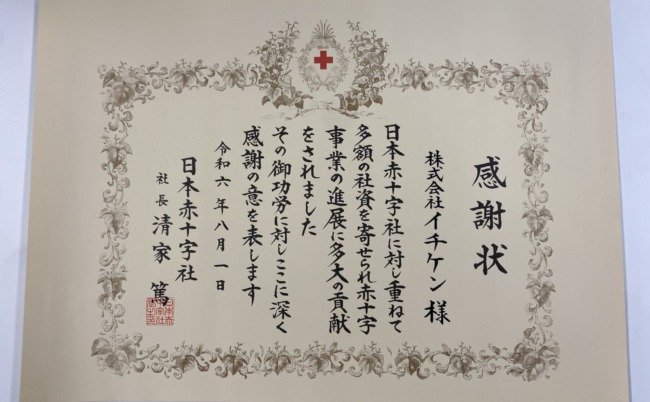 感謝状
株式会社イチケン様
日本赤十字社に対し重ねて
多額の社資を寄せられ赤十字
事業の進展に多大の貢献
をされました
その御功労に対しここに深く
感謝の意を表します
令和六年八月一日
日本赤十字社
社長 清家篤